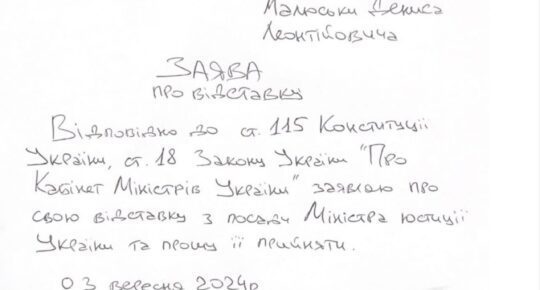 Малюськи Дениса
Леонтійовича
ЗАЯВА
про відставку
Відповідно до ст. 115 Конституції
України, ст. 18 Закону України "Про
Кабінет Міністрів України" заявляю про
свою відставку з посади Міністра юстиції
України та прошу її прийняти.
03 вересня 2024р